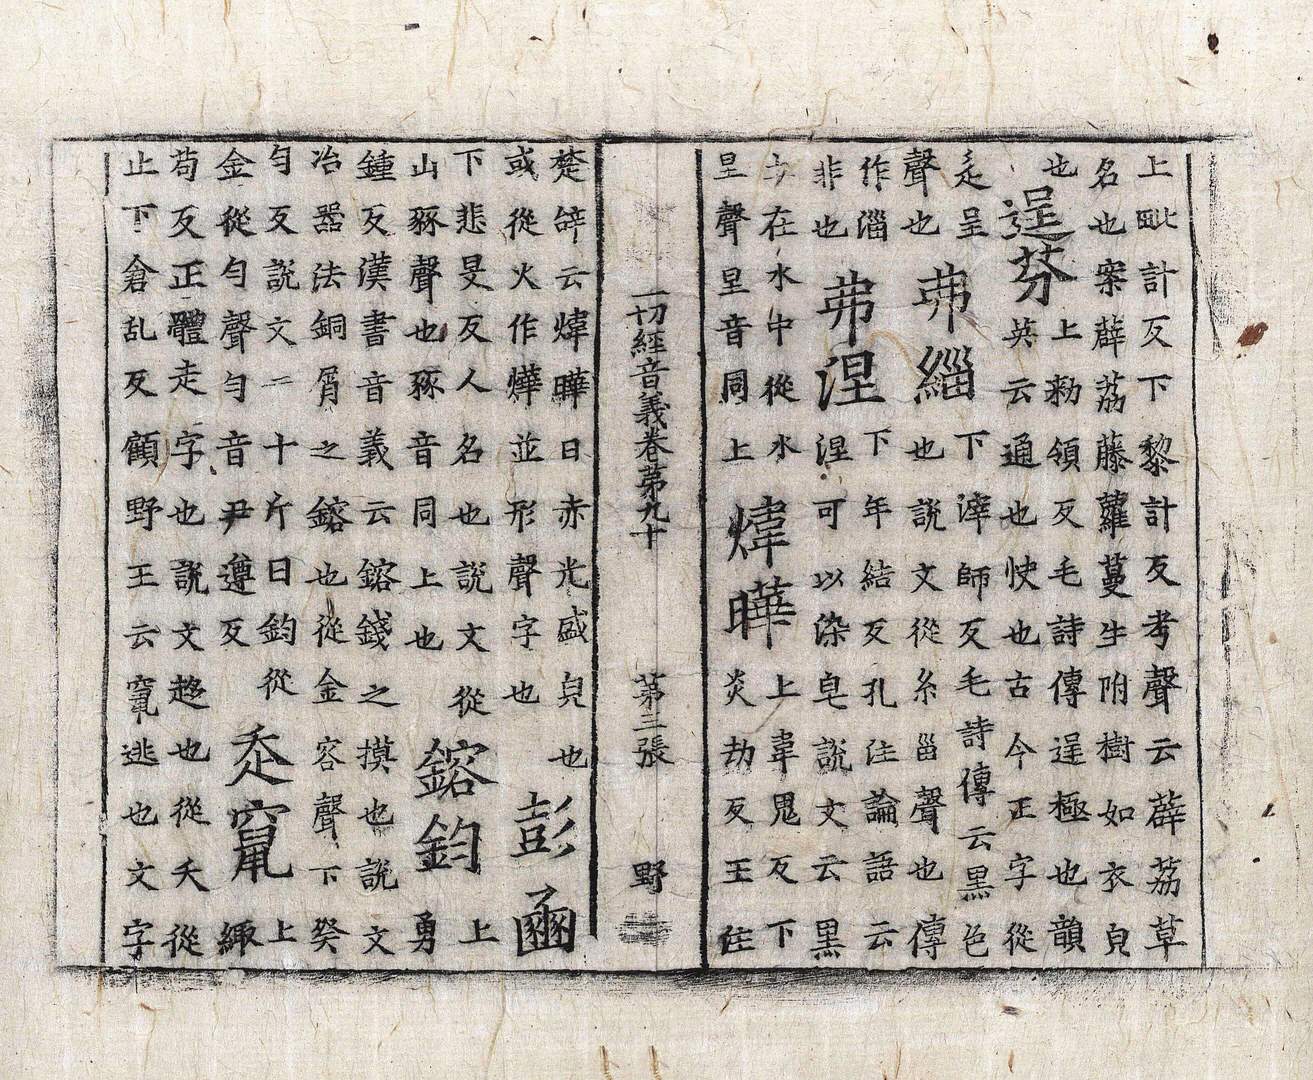 上毗計反下黎計反考聲云薜荔草
名也案薜荔藤蘿蔓生附樹如衣皃
也上勑領反毛詩傳逞極也韻
逞芬英云通也快也古今正字從
辵呈下滓師反毛詩傳云黑色
聲也茀緇也說文從糸甾聲也傳
作淄下年結反孔注論語云
非也茀涅涅可以染皂說文云黑
土在水中從水上韋鬼反下
呈聲呈音同上煒曄炎劫反王注
一切經音義卷第九十 第三張 野
楚辝云煒曄日赤光盛皃也
或從火作爗並形聲字也彭豳
下悲旻反人名也說文從上
山豩聲也豩音同上也鎔鈞勇
鍾反漢書音義云鎔錢之摸也說文
冶器法銅屑之鎔也從金容聲下癸
勻反說文二十斤曰鈞從上
金從勻聲勻音尹遵反赱竄緅
苟反正體走字也說文趍也從夭從
止下倉乱反顧野王云竄逃也文字